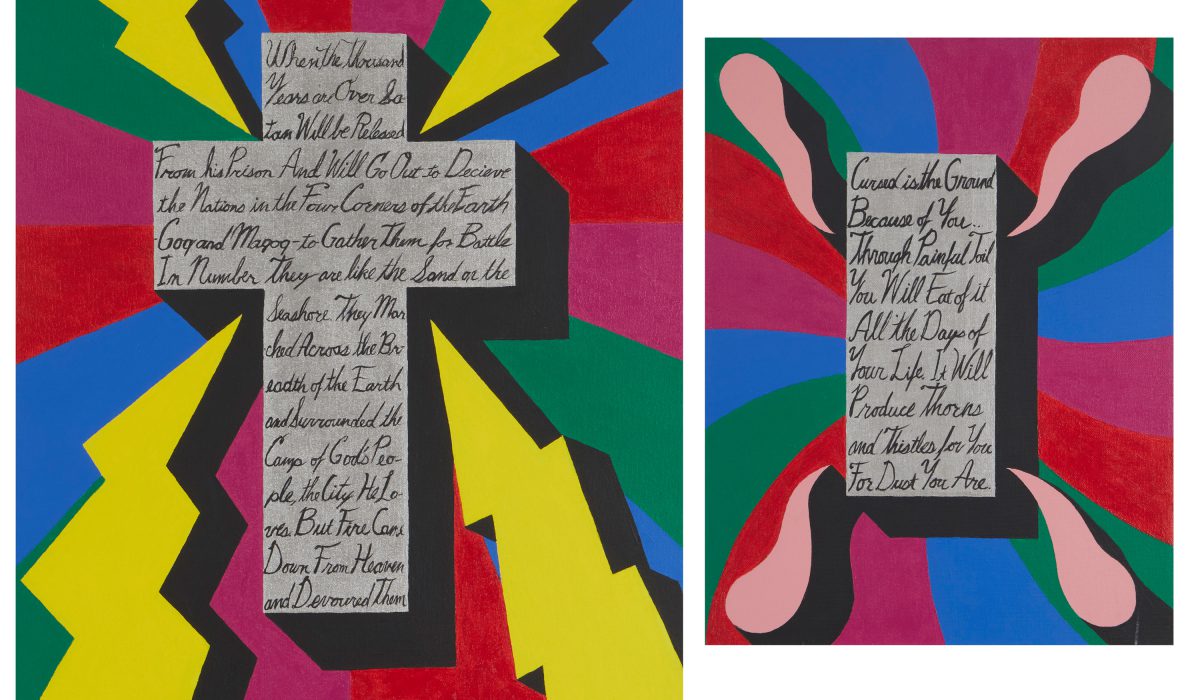 When the Thousand
Years are Over Sa-
tan Will be Released
From his Prison And Will Go Out to Decieve
the Nations in the Four Corners of the Earth
Gog and Magog - to Gather Them for Battle
In Number They are like the Sand on the
Seashore They Mar
ched Across the Br-
eadth of the Earth
and Surrounded the
Camp of God's Peo-
ple, the City He Lo-
ves. But Fire Came
Down From Heaven
and Devoured Them
Cursed is the Ground
Because of You..
Through Painful Toil
You Will Eat of it
All the Days of
Your Life It Will
Produce Thorns
and Thistles for You
For Dust You Are..